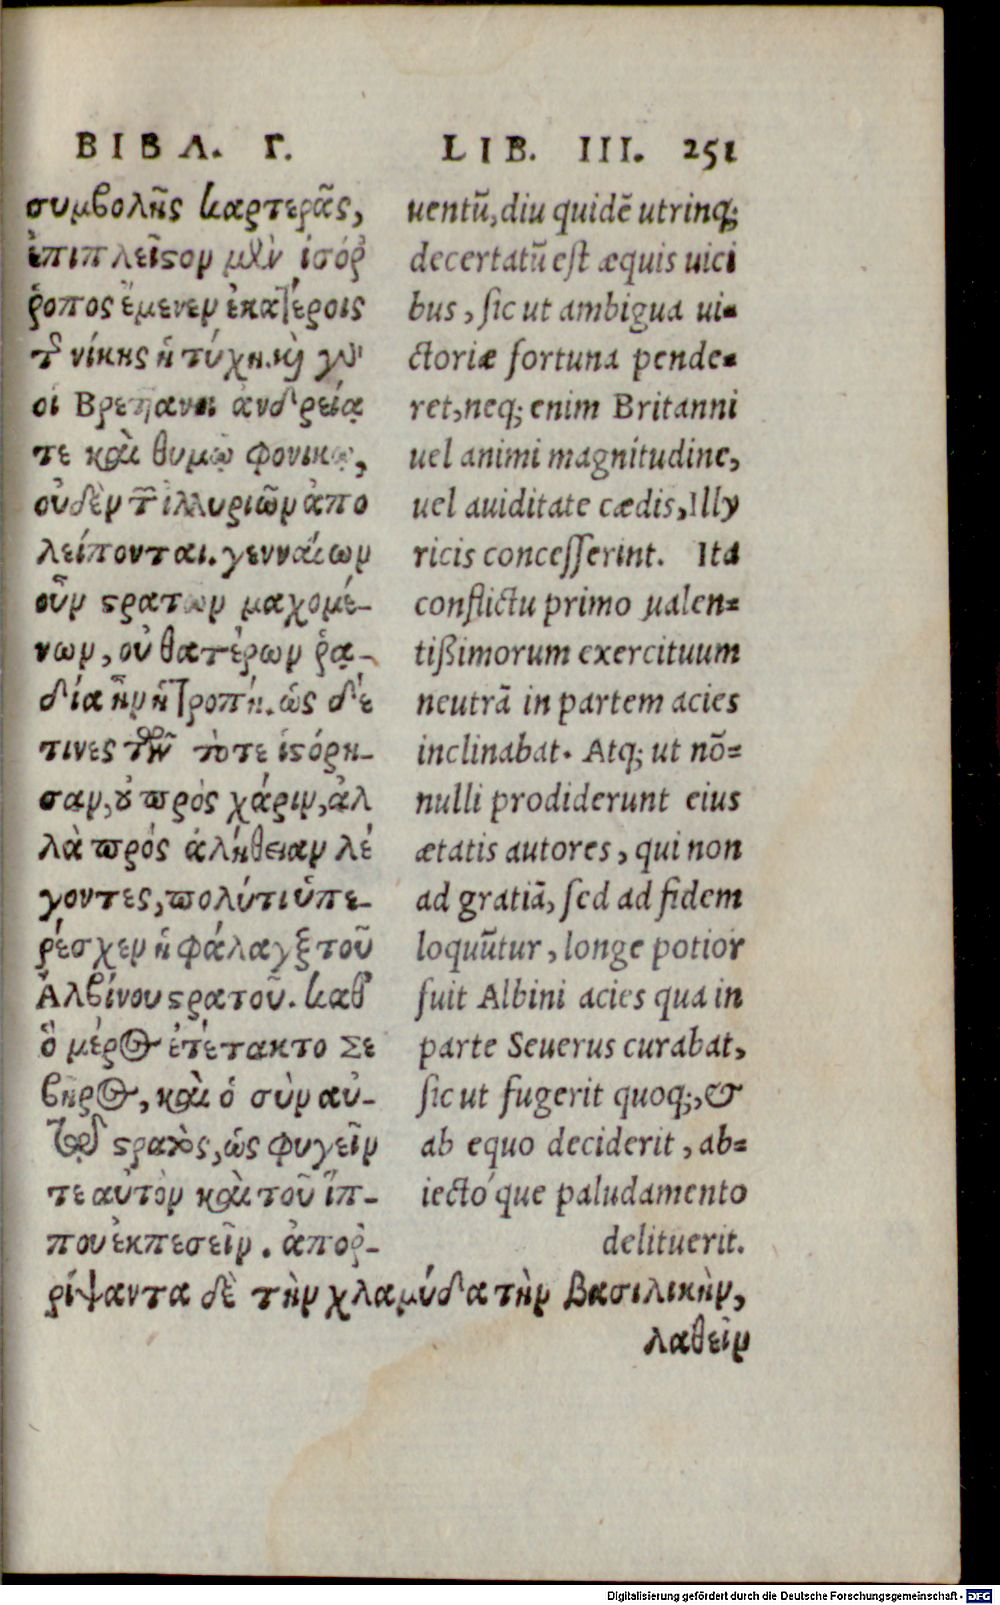 ΒΙΒΛ. Γ.
συμβολῆς καρτερᾶς,
ἐπιπλεῖστον μὲν ἰσόῤ
ῥοπος ἔμενεν ἑκατέροις
τ῀ νίκης ἡ τύχη. καὶ γὰρ
οἱ Βρετανοὶ ἀνδρείᾳ
τε καὶ θυμῷ φονικῷ,
οὐδὲν τ῀ ἰλλυριῶν ἀπο
λείπονται. γενναίων
οὖν στρατῶν μαχομέ-
νων, οὐ θατέρων ῥᾳ-
δία ἦν ἡ τροπή. ὡς δέ
τινες τῶν τότε ἱστόρη-
σαν, οὐ πρὸς χάριν, ἀλ
λὰ πρὸς ἀλήθειαν λέ
γοντες, πολύ τι ὑπε-
ρέσχεν ἡ φάλαγξ τοῦ
Ἀλβίνου στρατοῦ. καθ᾽
ὃ μέρος ἐτέτακτο Σε
βῆρος, καὶ ὁ σὺν αὐ-
τῷ στρατὸς, ὡς φυγεῖν
τε αὐτὸν καὶ τοῦ ἵπ-
που ἐκπεσεῖν. ἀποῤ-
ρίψαντα δὲ τὴν χλαμύδα τὴν βασιλικὴν,
λαθεῖν
LIB. III. 251
uentũ, diu quidẽ utrinq;
decertatũ est æquis uici
bus, sic ut ambigua ui-
ctoriæ fortuna pende-
ret, neq; enim Britanni
uel animi magnitudine,
uel auiditate cædis, Illy
ricis concesserint. Ita
conflictu primo ualen-
tißimorum exercituum
neutrã in partem acies
inclinabat. Atq; ut nõ-
nulli prodiderunt eius
ætatis autores, qui non
ad gratiã, sed ad fidem
loquũtur, longe potior
fuit Albini acies qua in
parte Seuerus curabat,
sic ut fugerit quoq;, &
ab equo deciderit, ab-
iecto´que paludamento
delituerit.
Digitalisierung gefördert durch die Deutsche Forschungsgemeinschaft - DFG